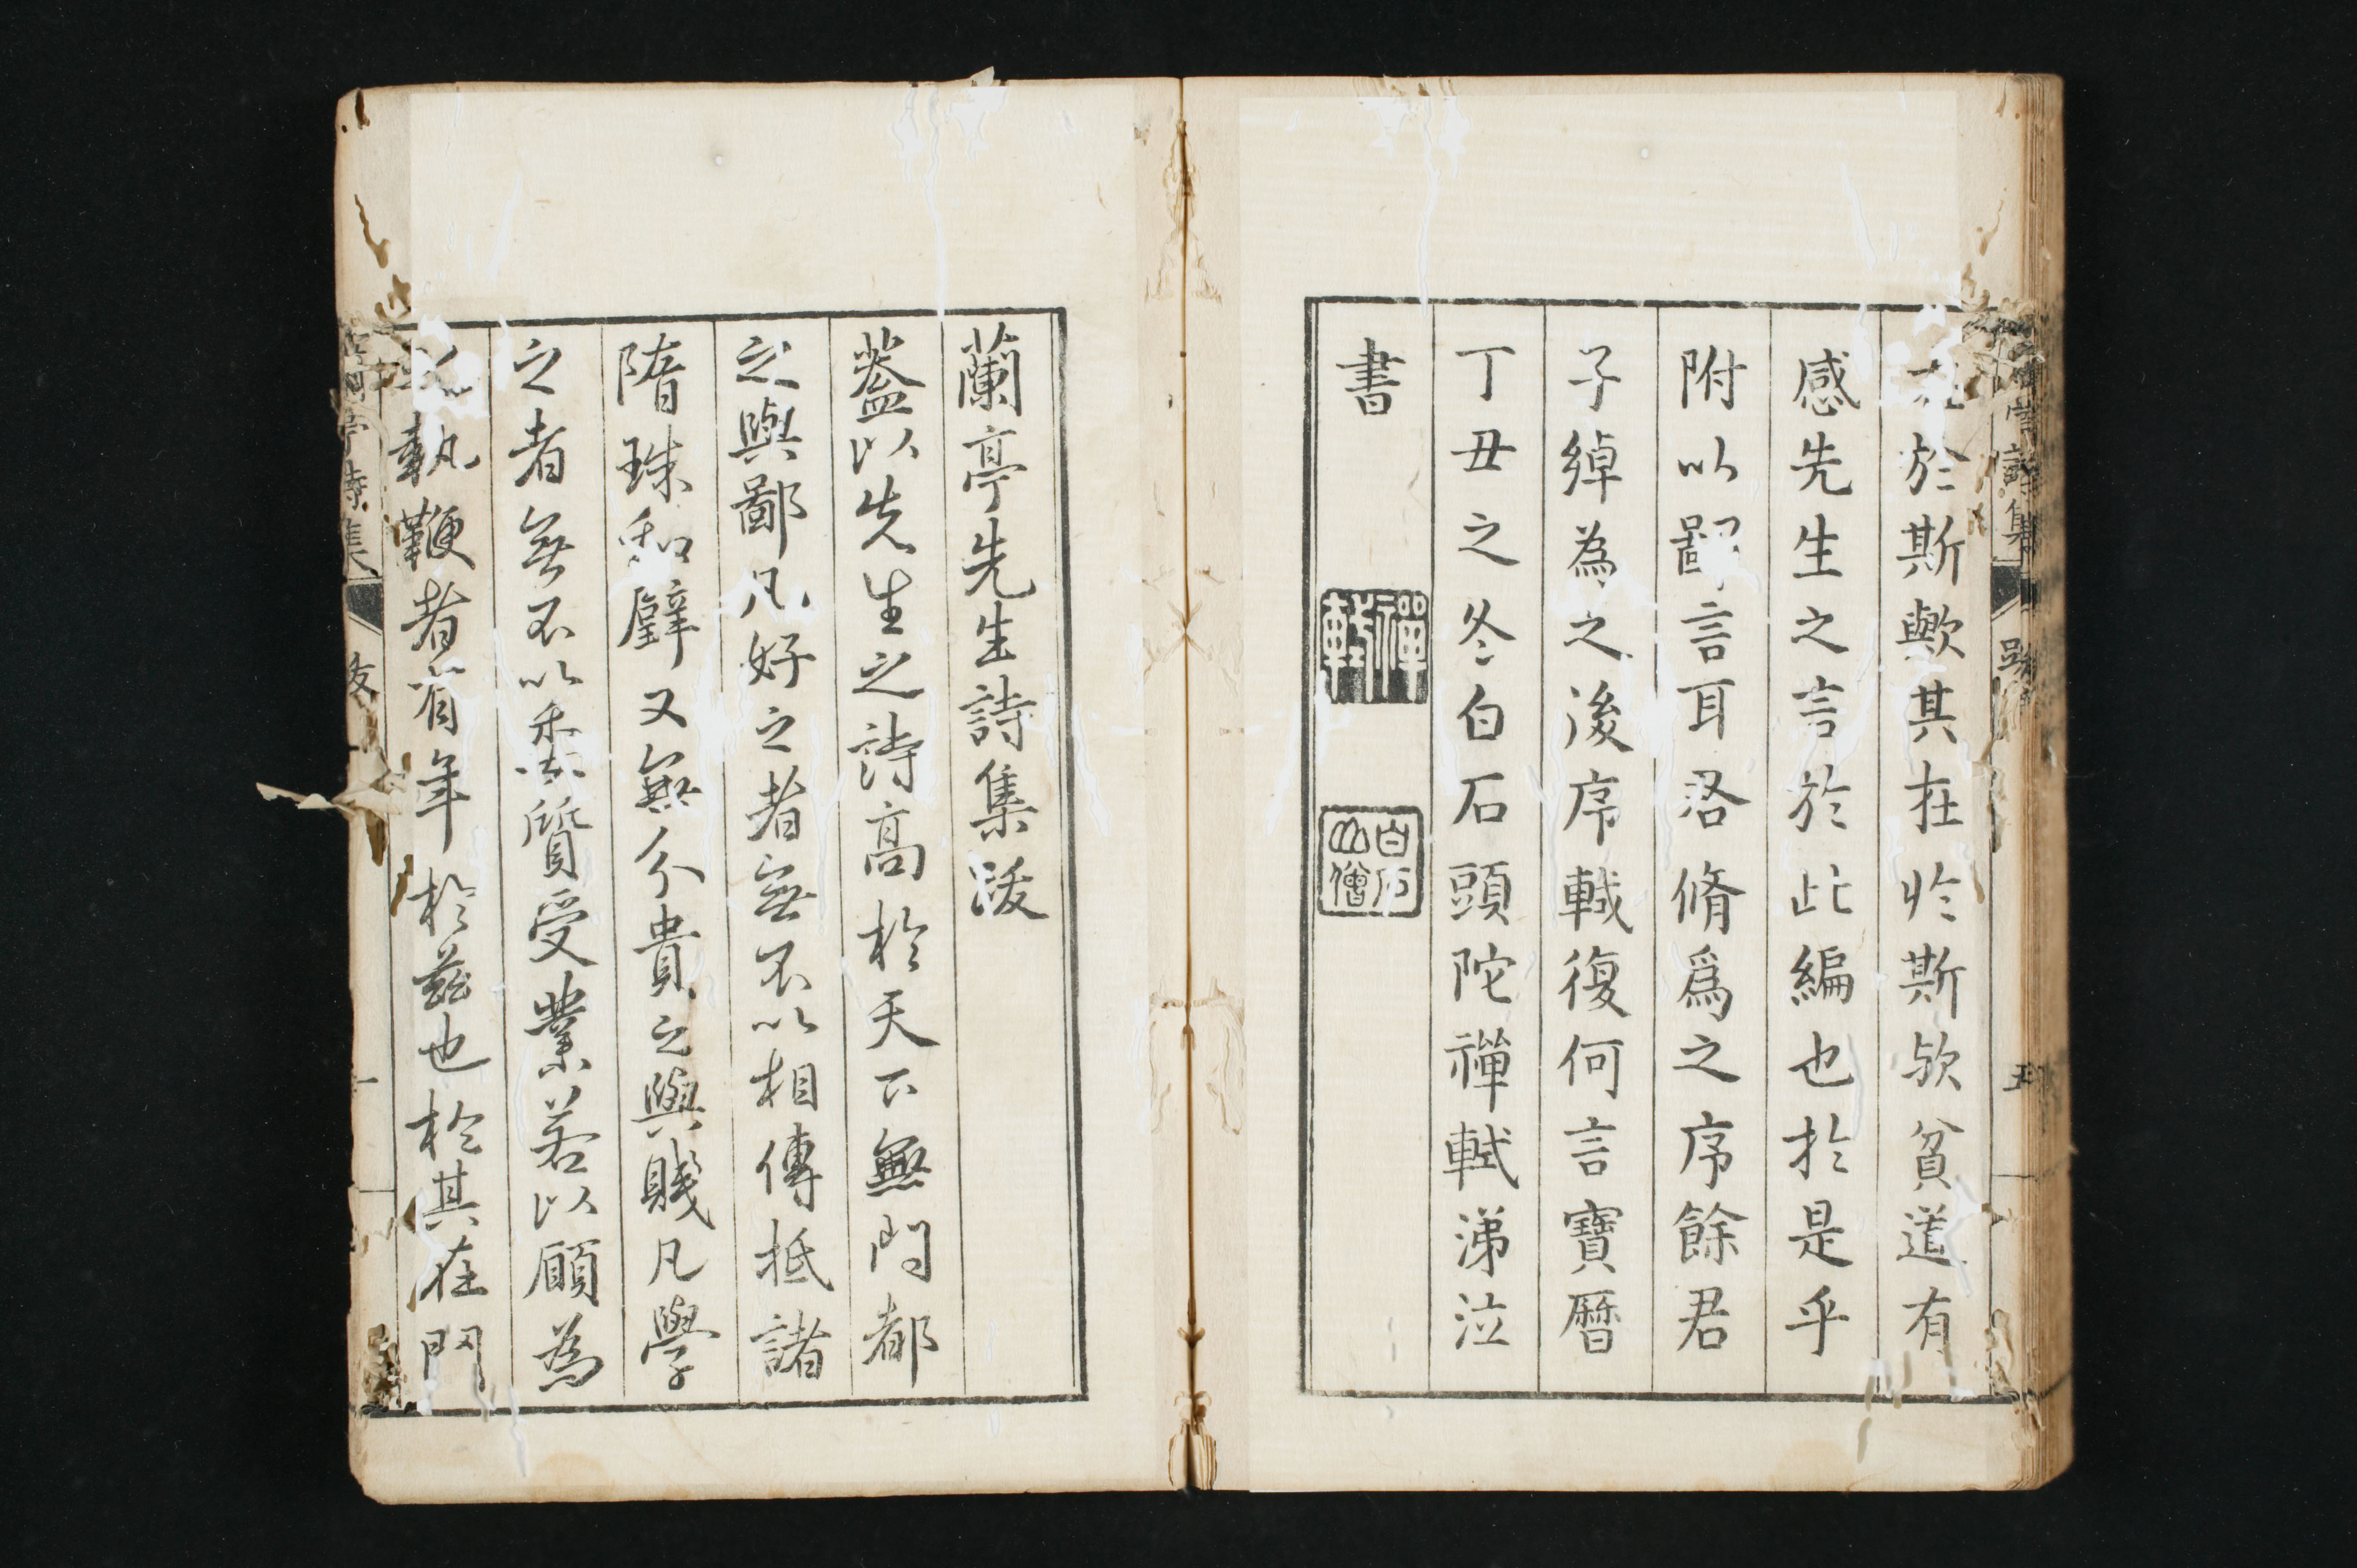 在於斯歟其在於斯歟貧道有
感先生之言於此編也於是乎
附以鄙言耳洛脩爲之序餘君
子綽為之後序軾復何言寶暦
丁丑之冬白石頭陀禪軾涕泣
書
禪軾
白石山僧
蘭亭先生詩集跋
蓋以先生之詩高於天下無門都
之與鄙凡好之者無不以相傳抵諸
隋珠和璧又無分貴之與賤凡學
之者無不以委質受業若以願為
之執鞭者有年於茲也於其在門